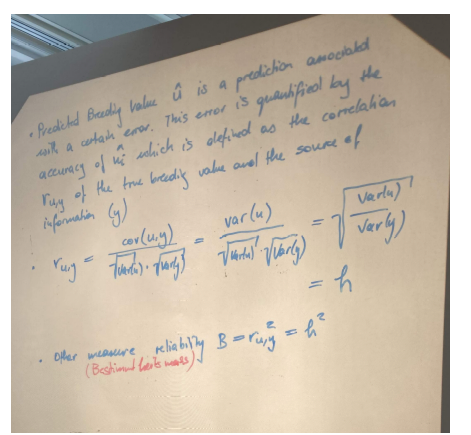 • Predicted Breeding Value û is a prediction associated
with a certain error. This error is quantified by the
accuracy of û which is defined as the correlation
r_{u,y} of the true breeding value and the source of
information (y)
• r_{u,y} = cov(u,y) / (√var(u) · √var(y)) = var(u) / (√var(u) · √var(y)) = √(var(u) / var(y))
= h
• Other measure reliability B = r_{u,y}² = h²
(Bestimmtheitsmass)